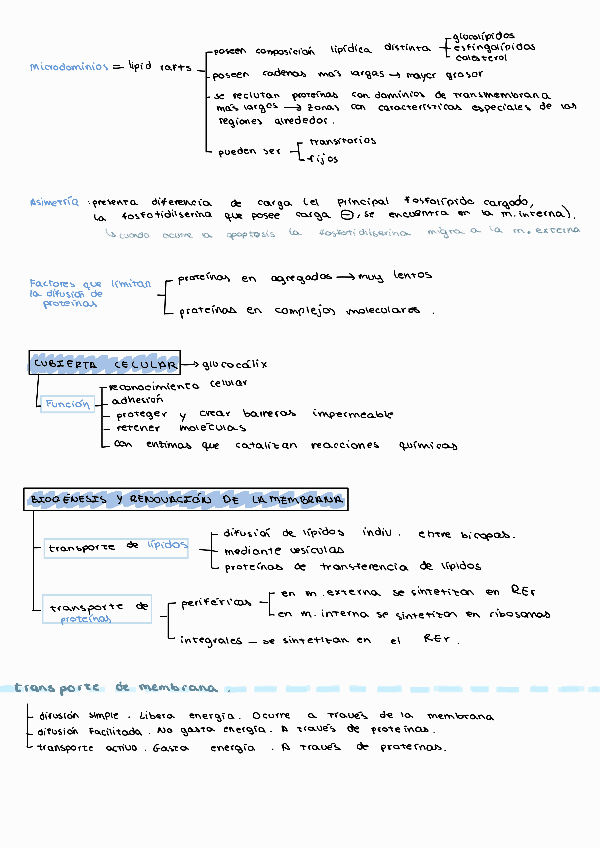 microdominios = lipid rafts
poseen composición lipídica distinta
glucolípidos
esfingolípidos
colesterol
poseen cadenas más largas → mayor grosor
se reclutan proteínas con dominios de transmembrana
más largos → zonas con características especiales de las
regiones alrededor.
pueden ser
transitorios
fijos
Asimetría : presenta diferencia de carga (el principal fosfolípido cargado,
la fosfatidilserina que posee carga ⊖, se encuentra en la m. interna).
↳ cuando ocurre la apoptosis la fosfatidilserina migra a la m. externa
Factores que limitan
la difusión de
proteínas
proteínas en agregados → muy lentos
proteínas en complejos moleculares .
CUBIERTA CELULAR → glucocálix
Función
reconocimiento celular
adhesión
proteger y crear barreras impermeable
retener moléculas
con enzimas que catalizan reacciones químicas
BIOGÉNESIS y RENOVACIÓN DE LA MEMBRANA
transporte de lípidos
difusión de lípidos indiv. entre bicapas.
mediante vesículas
proteínas de transferencia de lípidos
transporte de
proteínas
periféricas
en m. externa se sintetizan en REr
en m. interna se sintetizan en ribosomas
integrales – se sintetizan en el REr.
transporte de membrana .
difusión simple . Libera energía . Ocurre a través de la membrana
difusión facilitada . No gasta energía . A través de proteínas.
transporte activo . Gasta energía . A través de proteínas.